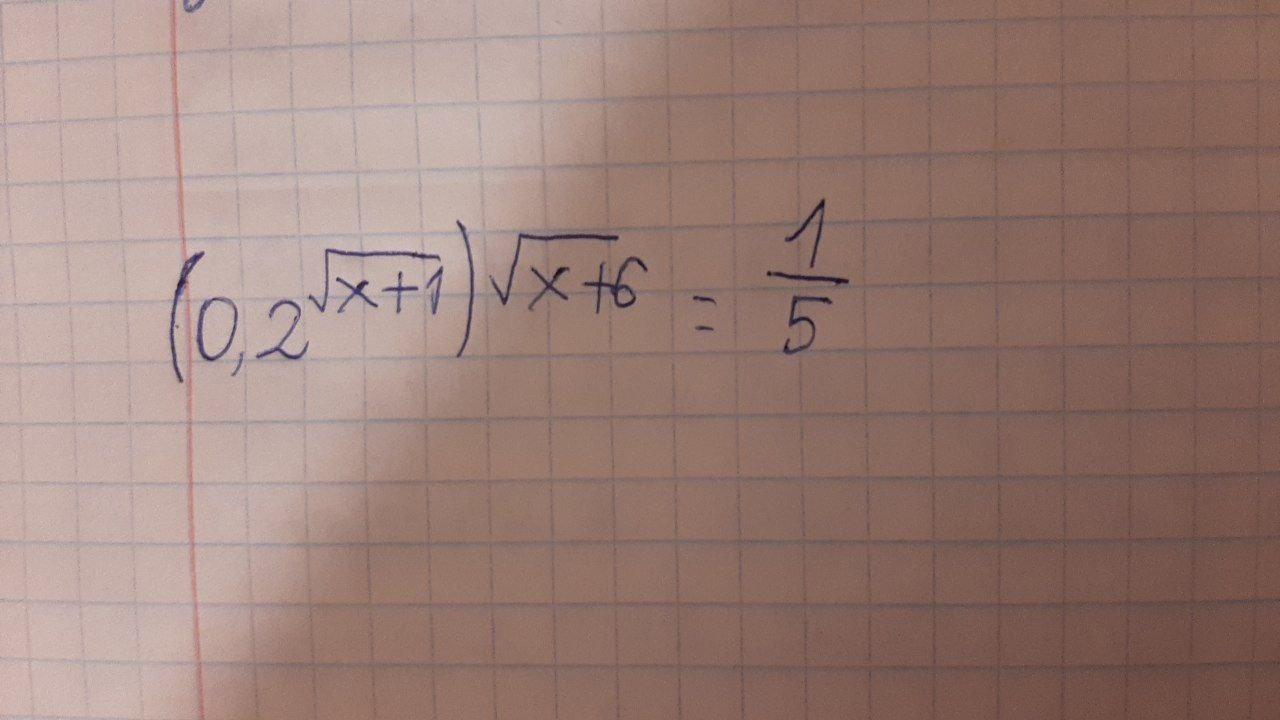 (0,2^{√(x+1)})^{√(x+6)} = 1/5